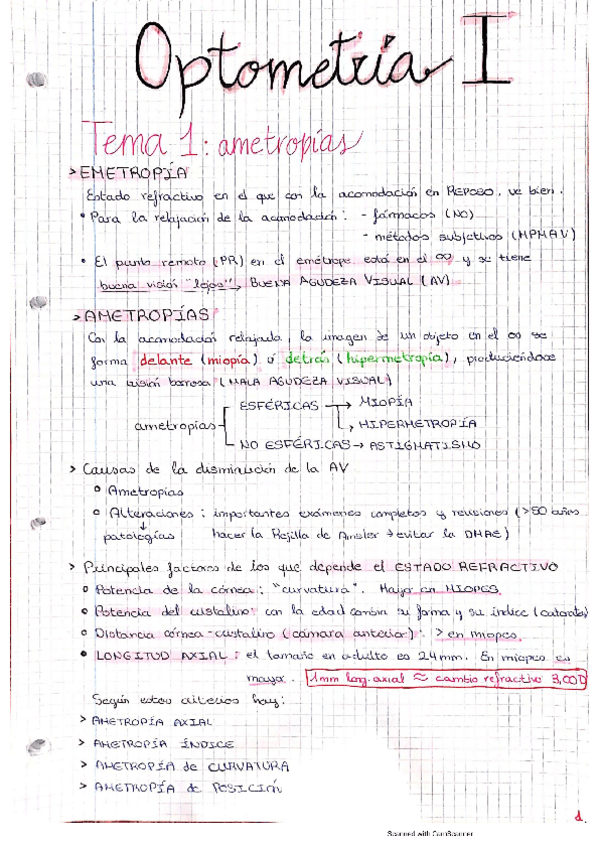 Optometría I
Tema 1: ametropías
> EMETROPÍA
Estado refractivo en el que con la acomodación en REPOSO, ve bien.
• Para la relajación de la acomodación: - fármacos (NO)
- métodos subjetivos (MPMAV)
• El punto remoto (PR) en el emétrope está en el ∞ y se tiene
buena visión "lejos" → BUENA AGUDEZA VISUAL (AV)
> AMETROPÍAS
Con la acomodación relajada, la imagen de un objeto en el ∞ se
forma delante (miopía) ó detrás (hipermetropía), produciéndose
una visión borrosa (MALA AGUDEZA VISUAL)
ESFÉRICAS → MIOPÍA
ametropías
HIPERMETROPÍA
NO ESFÉRICAS → ASTIGMATISMO
> Causas de la disminución de la AV
° Ametropías
° Alteraciones: importantes exámenes completos y revisiones (>50 años
patologías hacer la Rejilla de Amsler → evitar la DMAE)
> Principales factores de los que depende el ESTADO REFRACTIVO
° Potencia de la córnea: "curvatura". Mayor en MIOPES
° Potencia del cristalino: con la edad cambia su forma y su índice (catarata)
° Distancia córnea-cristalino (cámara anterior): > en miopes
• LONGITUD AXIAL: el tamaño en adulto es 24mm. En miopes es
mayor. 1mm long. axial ≈ cambio refractivo 3,00D
Según estos criterios hay:
> AMETROPÍA AXIAL
> AMETROPÍA ÍNDICE
> AMETROPÍA de CURVATURA
> AMETROPÍA de POSICIÓN
Scanned with CamScanner